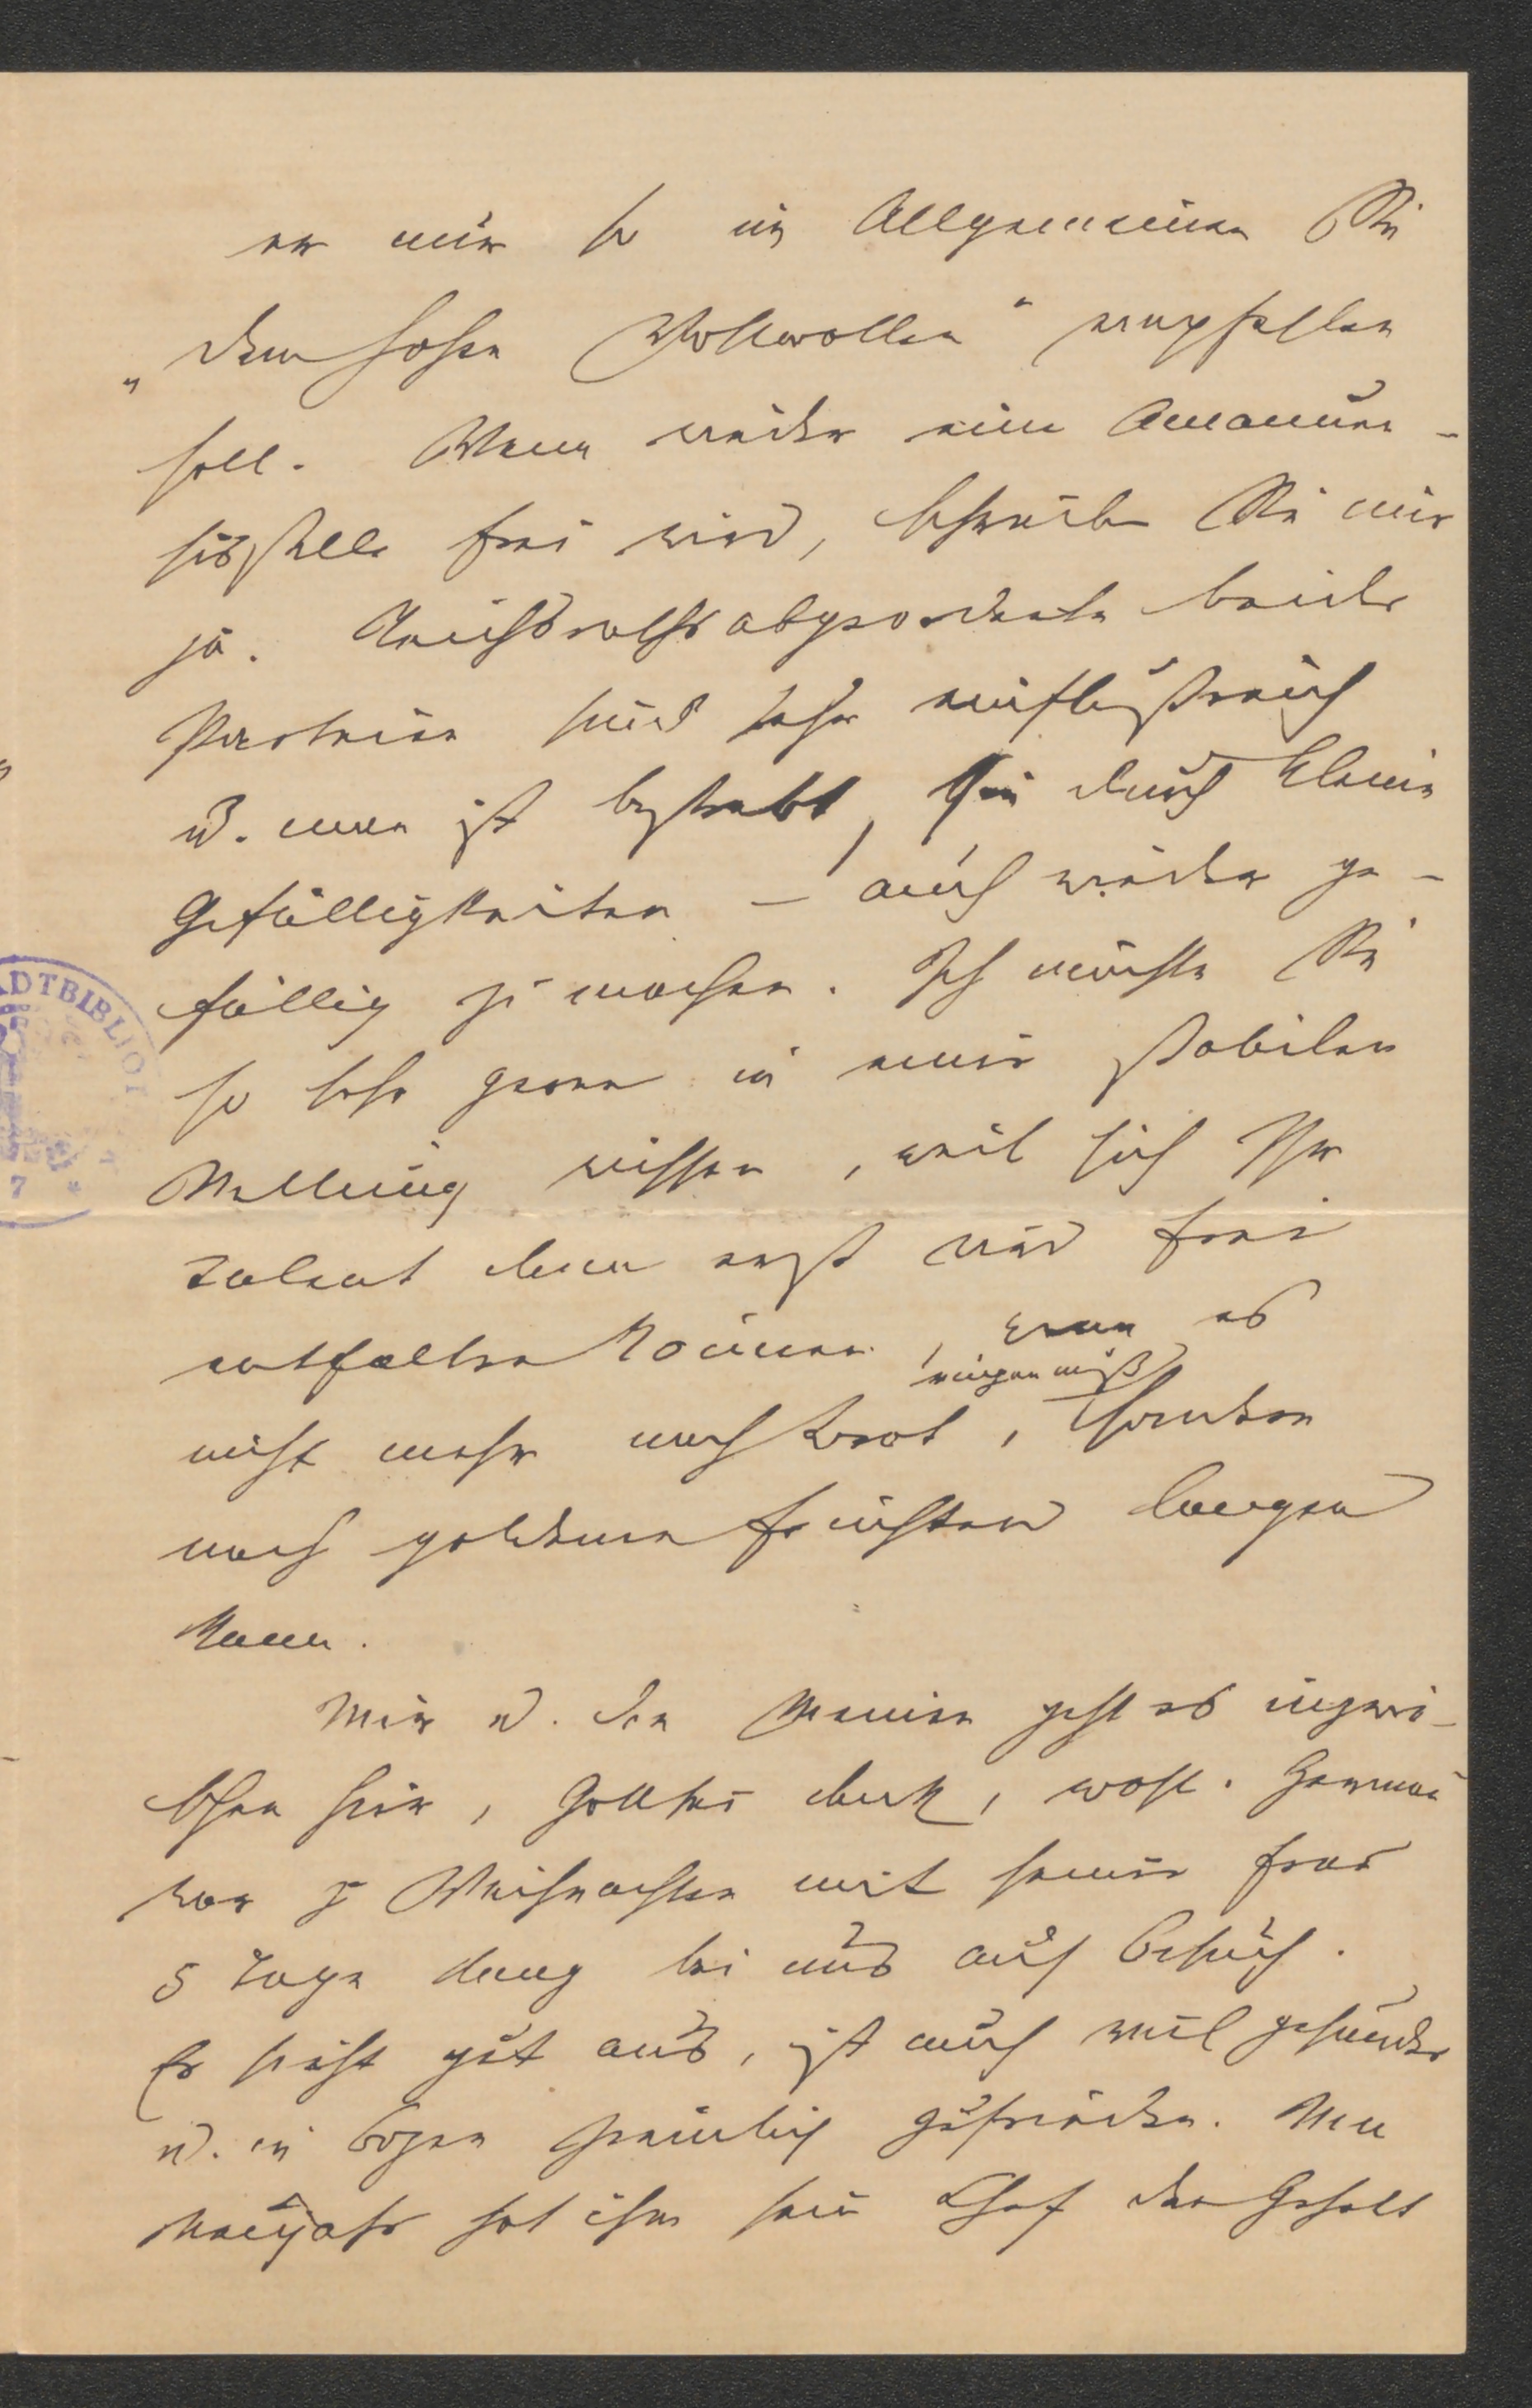 er mir so im Allgemeinen Sie
„dem hohen Wohlwollen“ empfehlen
soll. Wenn wieder eine Amanuen-
sisstelle frei wird, schreiben Sie mir
ja. Reichsrathsabgeordnete beider
Parteien sind sehr einflußreich
u. man ist bestrebt, sie durch kleine
Gefälligkeiten – auch wieder ge-
fällig zu machen. Ich möchte Sie
so sehr gerne in einer stabilen
Stellung wissen, weil sich Ihr
Talent dann erst wird frei
entfalten können, wenn es
ringen muß
nicht mehr nach Brot, sondern
nach goldenen Früchten langen
kann.
Mir u. den Meinen geht es inzwi-
schen hier, Gott sei dank, wohl. Hermann
war zu Weihnachten mit seiner Frau
5 Tage lang bei uns auf Besuch.
Er sieht gut aus, ist auch viel gesünder
u. in Bozen ziemlich zufrieden.
Neujahr hat ihm sein Chef den Gehalt
ADTBIBLIOT
7 *